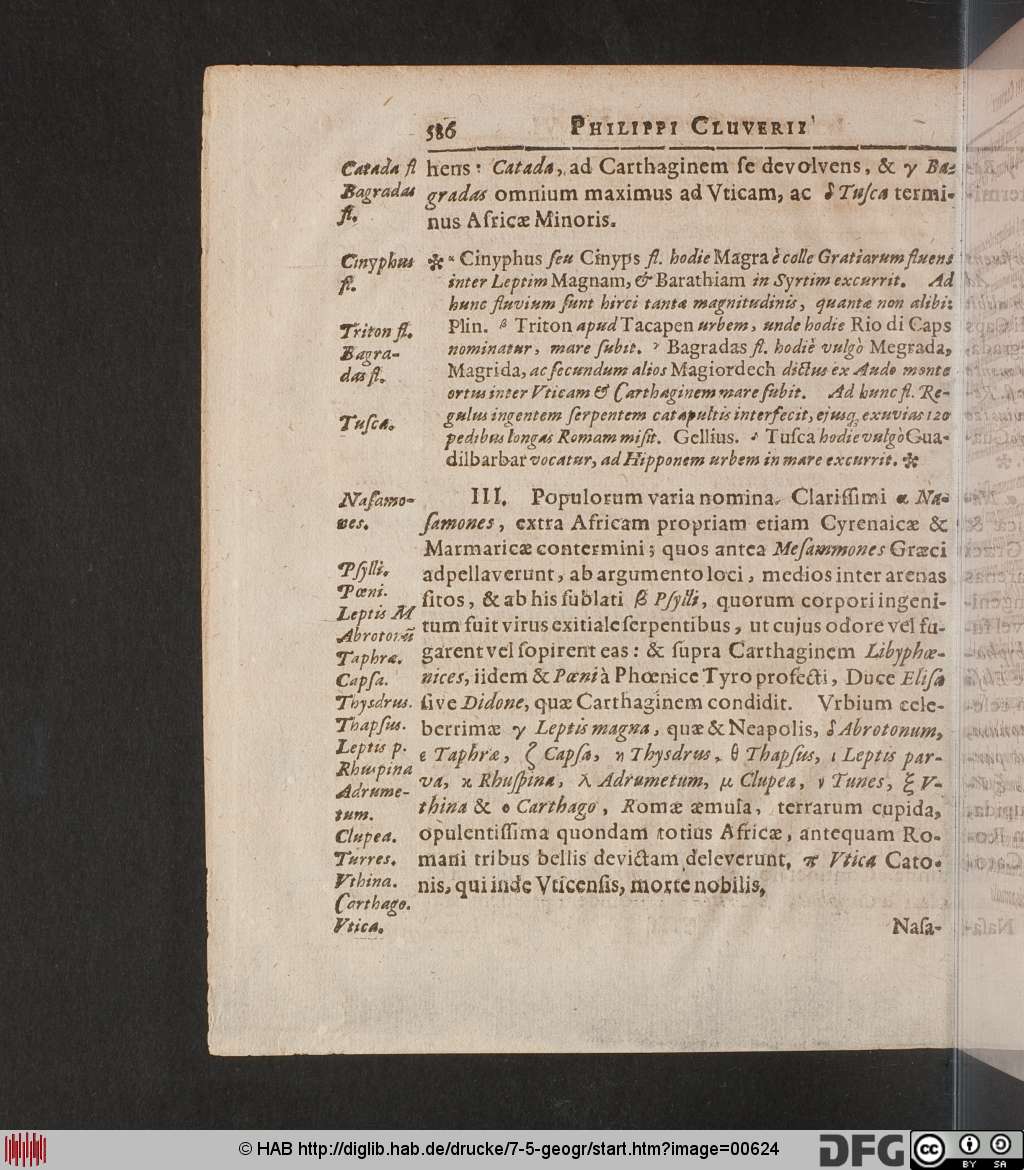 586 PHILIPPI CLUVERII
Catada fl
Bagradas
fl.
hens: Catada, ad Carthaginem ſe devolvens, & γ Ba-
gradas omnium maximus ad Vticam, ac δ Tuſca termi-
nus Africæ Minoris.
Cinyphus
fl.
Triton fl.
Bagra-
das fl.
Tuſca.
✻ α Cinyphus ſeu Cinyps fl. hodie Magra è colle Gratiarum fluens
inter Leptim Magnam, & Barathiam in Syrtim excurrit. Ad
hunc fluvium ſunt hirci tantæ magnitudinis, quantæ non alibi:
Plin. β Triton apud Tacapen urbem, unde hodie Rio di Caps
nominatur, mare ſubit. γ Bagradas fl. hodiè vulgò Megrada,
Magrida, ac ſecundum alios Magiordech dictus ex Audo monte
ortus inter Vticam & Carthaginem mare ſubit. Ad hunc fl. Re-
gulus ingentem ſerpentem catapultis interfecit, ejusq; exuvias 120
pedibus longas Romam miſit. Gellius. δ Tuſca hodie vulgò Gua-
dilbarbar vocatur, ad Hipponem urbem in mare excurrit. ✻
Naſamo-
nes.
Pſylli.
Pœni.
Leptis M
Abrotonū
Taphræ.
Capſa.
Thysdrus.
Thapſus.
Leptis p.
Rhuspina
Adrume-
tum.
Clupea.
Turres.
Vthina.
Carthago.
Vtica.
III. Populorum varia nomina. Clariſſimi α Na-
ſamones, extra Africam propriam etiam Cyrenaicæ &
Marmaricæ contermini; quos antea Meſammones Græci
adpellaverunt, ab argumento loci, medios inter arenas
ſitos, & ab his ſublati β Pſylli, quorum corpori ingeni-
tum fuit virus exitiale ſerpentibus, ut cujus odore vel fu-
garent vel ſopirent eas: & ſupra Carthaginem Libyphœ-
nices, iidem & Pœni à Phœnice Tyro profecti, Duce Eliſa
ſive Didone, quæ Carthaginem condidit. Vrbium cele-
berrimæ γ Leptis magna, quæ & Neapolis, δ Abrotonum,
ε Taphræ, ζ Capſa, η Thysdrus, θ Thapſus, ι Leptis par-
va, κ Rhuſpina, λ Adrumetum, μ Clupea, ν Tunes, ξ V-
thina & ο Carthago, Romæ æmula, terrarum cupida,
opulentiſſima quondam totius Africæ, antequam Ro-
mani tribus bellis devictam deleverunt, π Vtica Cato-
nis, qui inde Vticenſis, morte nobilis,
Naſa-
© HAB http://diglib.hab.de/drucke/7-5-geogr/start.htm?image=00624
DFG
cc BY SA